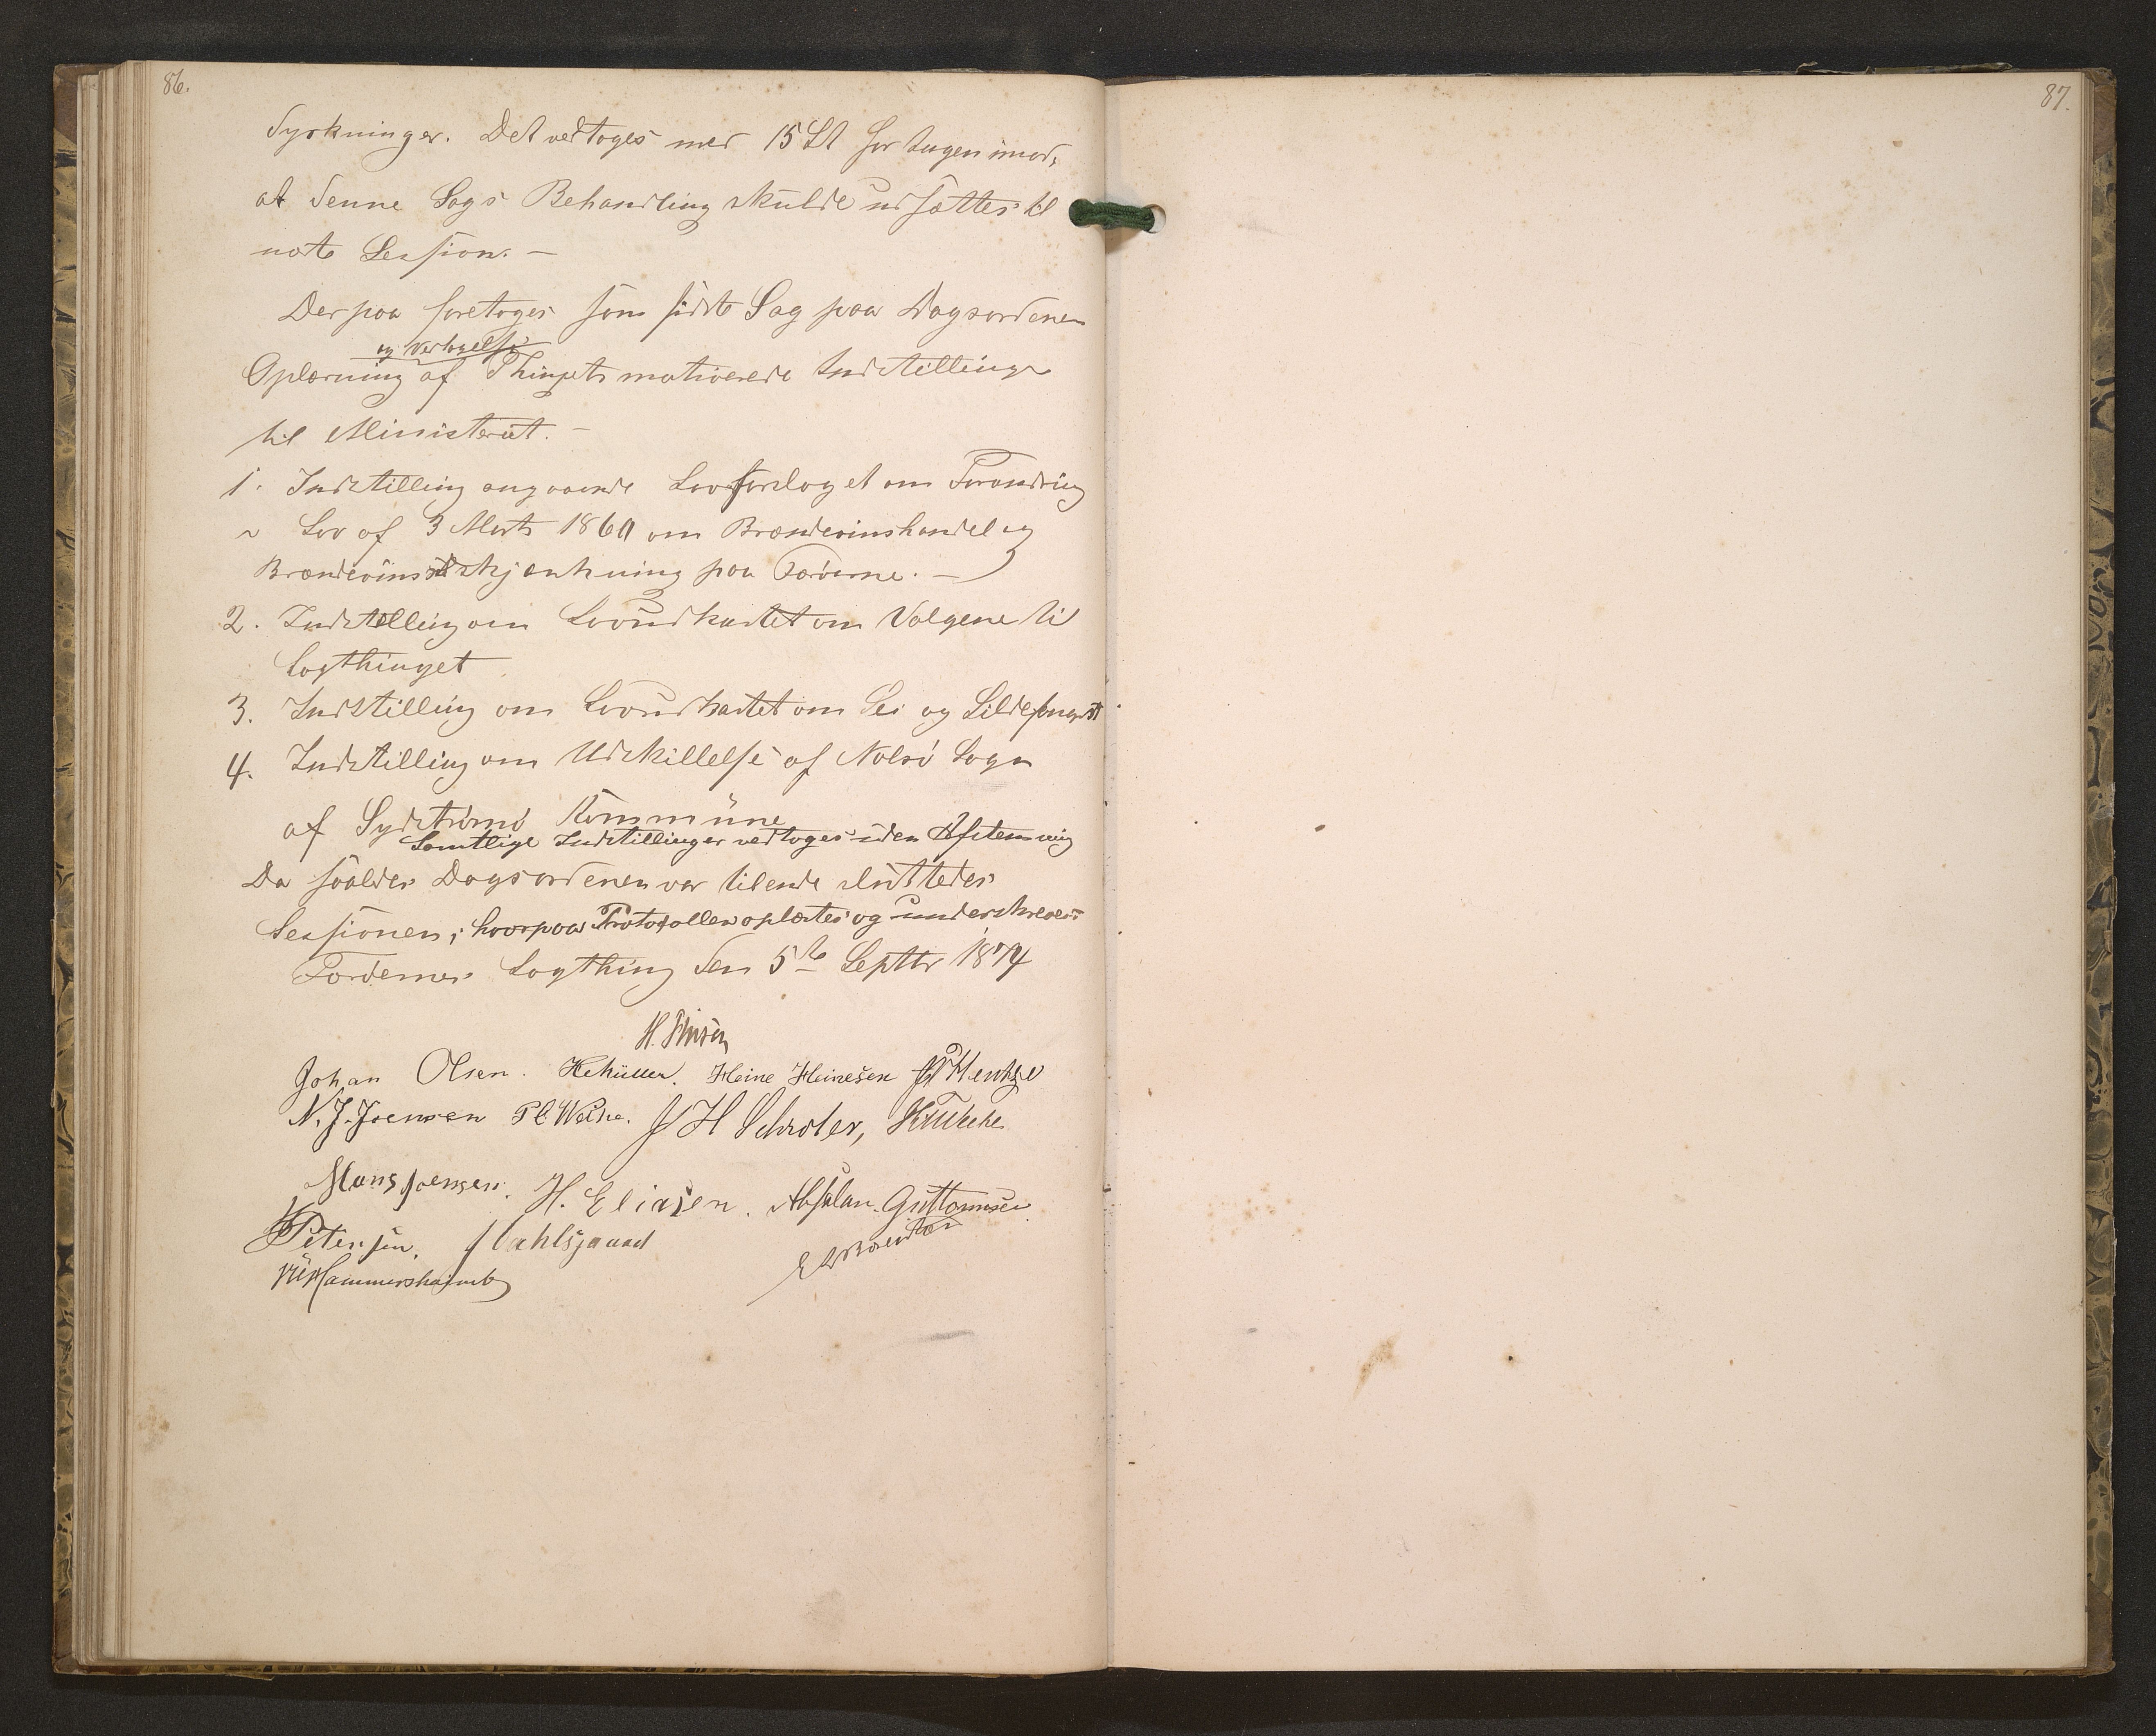 86.
87.
Dyrkninger. Det vedtoges med 15 St for Ingen imod,
at denne Sags Behandling skulde udsættes til
næste Session. —
Derpaa foretoges som sidste Sag paa Dagsordenen
og Vedtagelse
Oplæsning af Thingets motiverede Indstillinger
til Ministeriet. —
1. Indstilling angaaende Lovforslaget om Forandring
i Lov af 3 Marts 1860 om Brændeviinshandel og
Brændeviinsudskjænkning paa Færøerne. —
2. Indstilling om Lovudkastet om Valgene til
Lagthinget
3. Indstilling om Lovudkastet om Sei og Sildefangst
4. Indstilling om Udskillelse af Nolsø Sogn
af Sydstrømø Kommune
Samtlige Indstillinger vedtoges uden Afstemning
Da saaledes Dagsordenen var tilende sluttedes
Sessionen; hvorpaa Protokollen oplæstes og underskreves
Færøernes Lagthing den 5te Septbr 1874
H. Finsen
Johan Olsen. HCMüller. Heine Heinesen Hentze
N. J. Joensen Weihe. J H Schrøter, Lützen
Mons Joensen. H. Eliasen. Absalon Guttormsen
Petersen. J Dahlsgaard
Hammershaimb